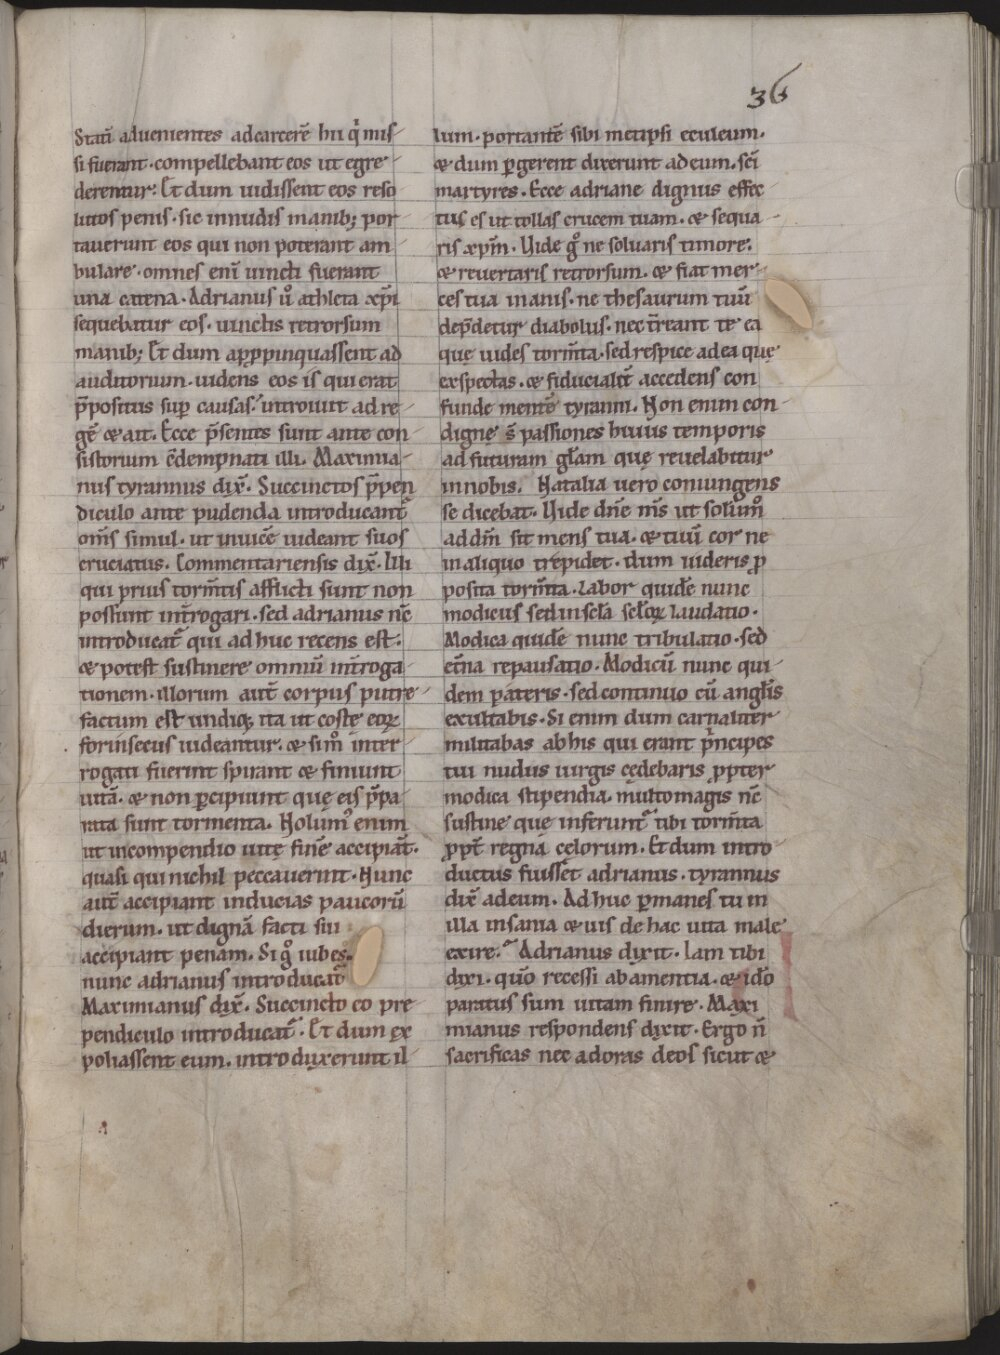 36
Statī aduenientes adcarcerē hii q̇ mis
si fuerant · compellebant eos ut egre
derentur: Et dum uidissent eos reso
lutos penis · sic innudis manib; por
tauerunt eos qui non poterant am
bulare · omnes enī uincti fuerant
una catena · Adrianus u̾ athleta xp̄i
sequebatur eos · uinctis retrorsum
manib; Et dum app̱pinquassent ad
auditorium · uidens eos is qui erat
p̄positus sup̱ causas: introiuit ad re
gē & ait. Ecce p̄sentes sunt ante con
sistorium c̄dempnati illi. Maximia
nus tyrannus dix̄. Succinctos p̄pen
diculo ante pudenda introducant᷑
om̄s simul · ut inuicē uideant suos
cruciatus. Commentariensis dix̄. Illi
qui prius torm̄tis afflicti sunt non
possunt int̄rogari · sed adrianus nc̄
introducat᷑ qui ad huc recens est:
& potest sustinere omnū int̄roga
tionem · illorum aut̄ corpus putre
factum est undiq; ita ut costę eoꝝ
forinsecus uideantur · & sim̾ inter
rogati fuerint spirant & finiunt
uitā · & non ꝑcipiunt quę eis p̄pa
rata sunt tormenta. Nolum᷒ enim
ut incompendio uitę finē accipiāt ·
quasi qui nichil peccauerint · Nunc
aut̄ accipiant inducias paucorū
dierum · ut dignā facti sui
accipiant penam. Si g̊ iubes ·
nunc adrianus introducat᷑
Maximianus dix̄. Succincto eo pre
pendiculo introducat᷑. Et dum ex
poliassent eum · introduxerunt il
lum · portantē sibi metipsi eculeum ·
& dum ꝑgerent dixerunt ad eum · sc̄i
martyres · Ecce adriane dignus effec
tus es ut tollas crucem tuam · & sequa
ris xp̄m · Uide g̊ ne soluaris timore:
& reuertaris retrorsum · & fiat mer
ces tua inanis · ne thesaurum tuū
dep̄detur diabolus · nec t̄reant te ea
quę uides torm̄ta · sed respice ad ea quę
exspectas · & fiducialit̄ accedens con
funde mentē tyranni. Non enim con
dignę s̄ passiones huius temporis
ad futuram gl̄am quę reuelabitur
innobis. Natalia uero coniungens
se dicebat. Uide dn̄e m̄s ut solum̊
ad dm̄ sit mens tua · & tuū cor ne
inaliquo trepidet · dum uideris ꝓ
posita torm̄ta · Labor quidē nunc
modicus sed insc̄la sc̄loꝝ laudatio ·
Modica quidē nunc tribulatio · sed
et̄na repausatio. Modicū nunc qui
dem pateris · sed continuo cū angl̄is
exultabis · Si enim dum carnaliter
militabas ab his qui erant p̍ncipes
tui nudus uirgis cędebaris ꝓpter
modica stipendia · multo magis nc̄
sustine que inferunt᷑ tibi torm̄ta
ꝓpt̄ regna cęlorum. Et dum intro
ductus fuisset adrianus · tyrannus
dix̄ ad eum. Ad huc ꝑmanes tu in
illa insania & uis de hac uita male
exire: Adrianus dixit. Iam tibi
dixi · quō recessi ab amentia · & idō
paratus sum uitam finire. Maxi
mianus respondens dixit. Ergo n̄
sacrificas nec adoras deos sicut &